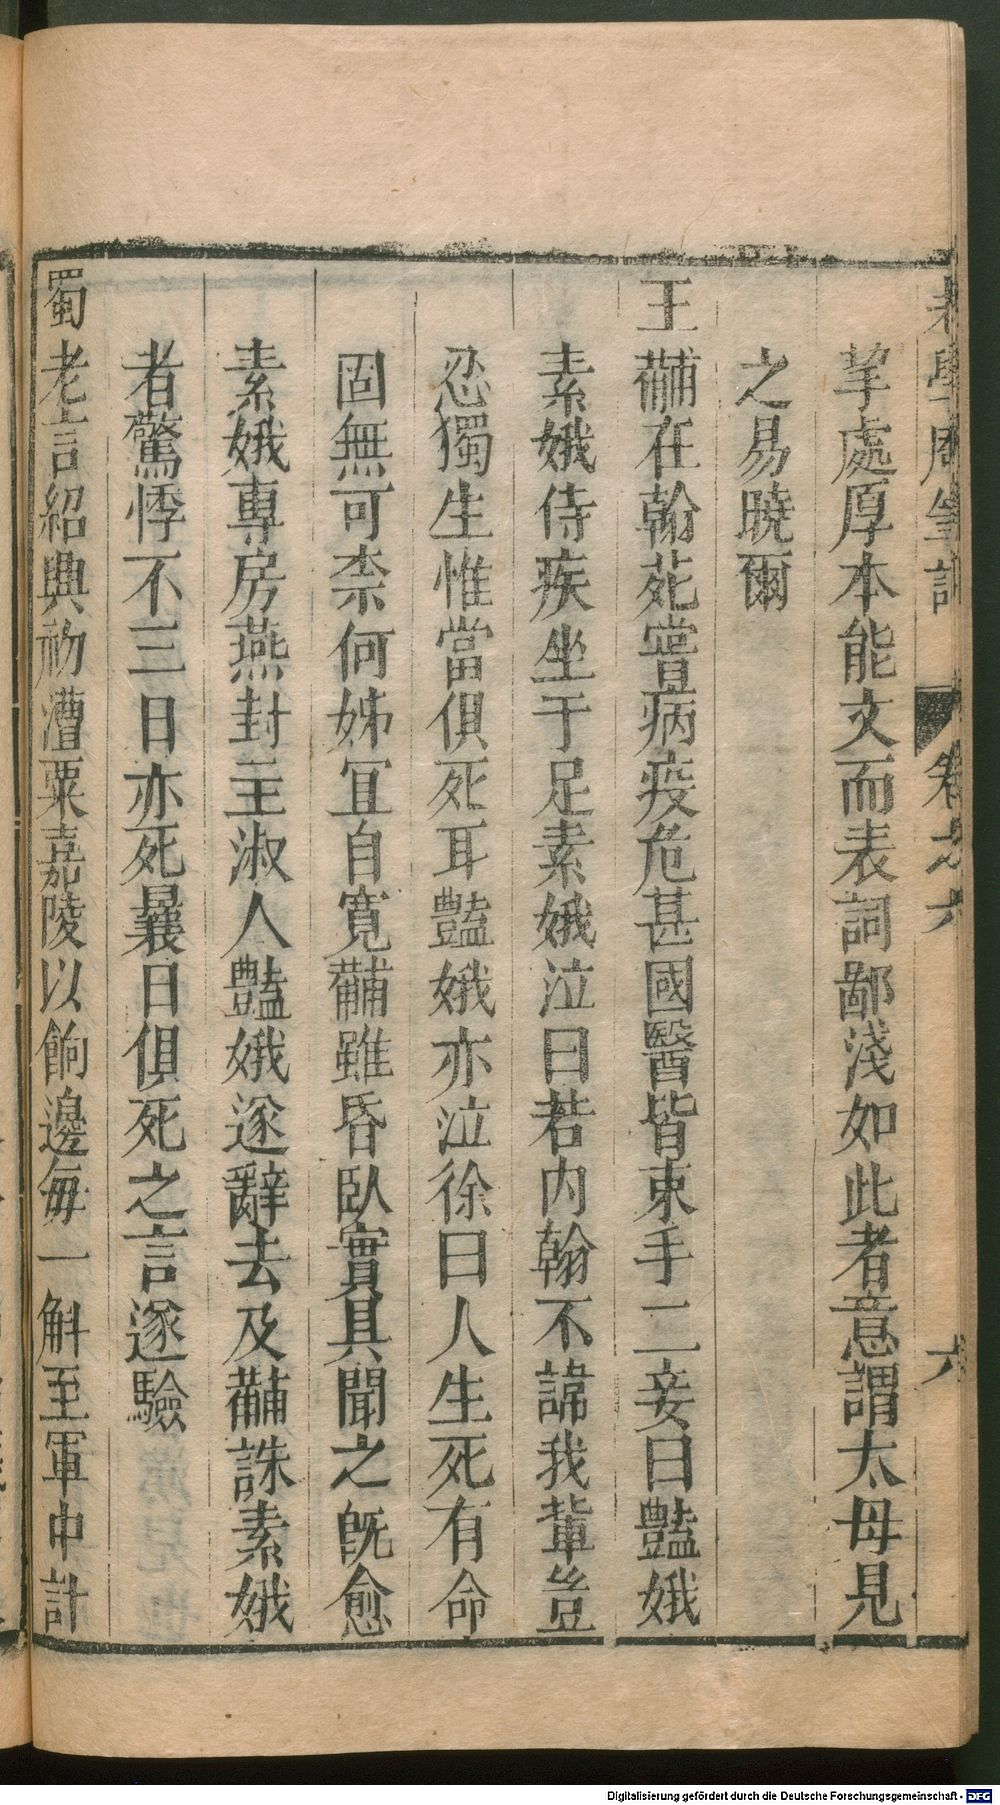 老學庵筆記 卷之六 六
挈處厚本能文而表詞鄙淺如此者意謂太母見
之易曉爾
王黼在翰苑嘗病疫危甚國醫皆束手二妾曰豔娥
素娥侍疾坐于足素娥泣曰若內翰不諱我輩豈
忍獨生惟當俱死耳豔娥亦泣徐曰人生死有命
固無可柰何姊宜自寬黼雖昏臥實具聞之旣愈
素娥專房燕封至淑人豔娥遂辭去及黼誅素娥
者驚悸不三日亦死曩日俱死之言遂驗
蜀老言紹興初漕粟嘉陵以餉邊每一斛至軍中計
Digitalisierung gefördert durch die Deutsche Forschungsgemeinschaft - DFG